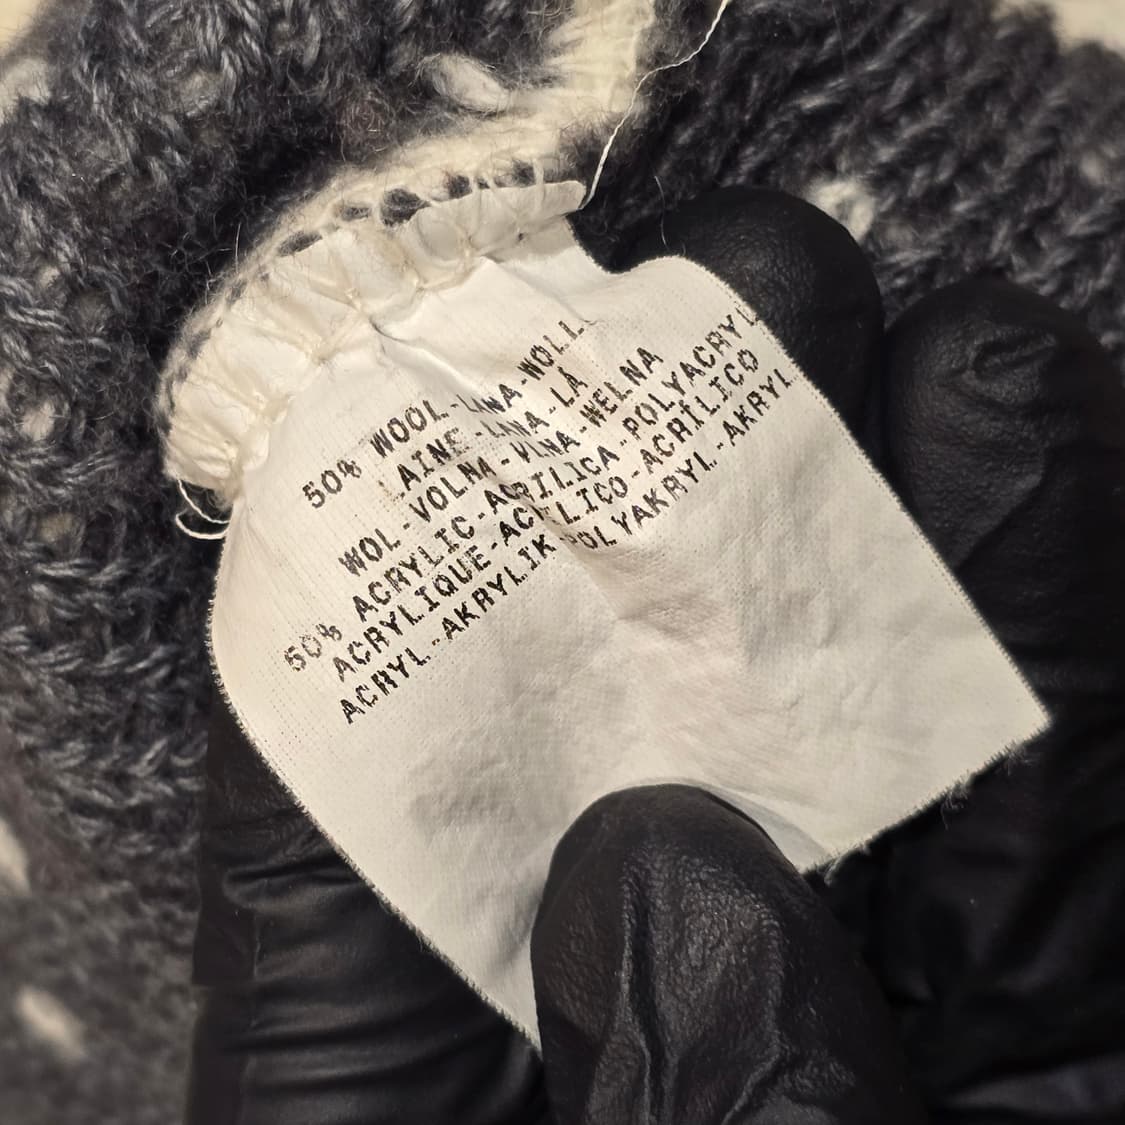 50% WOOL-LANA-WOLL
LAINE-LANA-LÃ
WOL-VOLNA-VLNA-WELNA
50% ACRYLIC-ACRILICA-POLYACRYL
ACRYLIQUE-ACRILICO-ACRÍLICO
ACRYL-AKRYLIK-POLYAKRYL-AKRYL